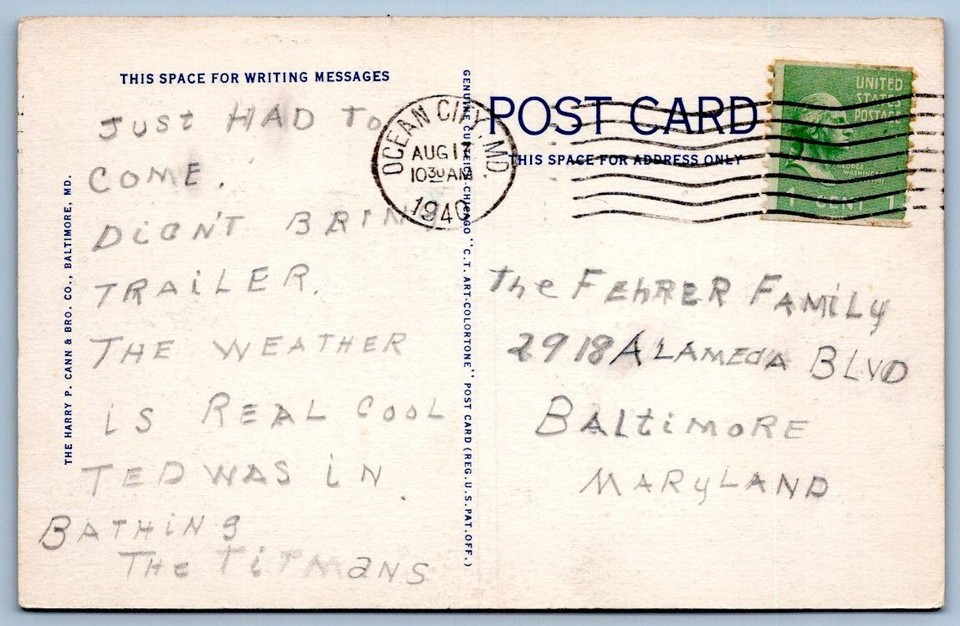 THIS SPACE FOR WRITING MESSAGES
JUST HAD TO
COME.
DiDN'T BRING
TRAiLER.
THE WEATHER
iS REAL COOL
TED WAS iN
BATHiNg
THe TiTMaNS
THE HARRY P. CANN & BRO. CO., BALTIMORE, MD.
GENUINE CURTEICH-CHICAGO "C.T. ART-COLORTONE" POST CARD (REG. U.S. PAT. OFF.)
OCEAN CITY, MD.
AUG 17
1030 AM
1940
POST CARD
THIS SPACE FOR ADDRESS ONLY
UNITED
STATES
POSTAGE
WASHINGTON
1 CENT 1
The FEHRER FAMiLy
2918 ALAMEDA BLVD
BALtiMORE
MARyLAND